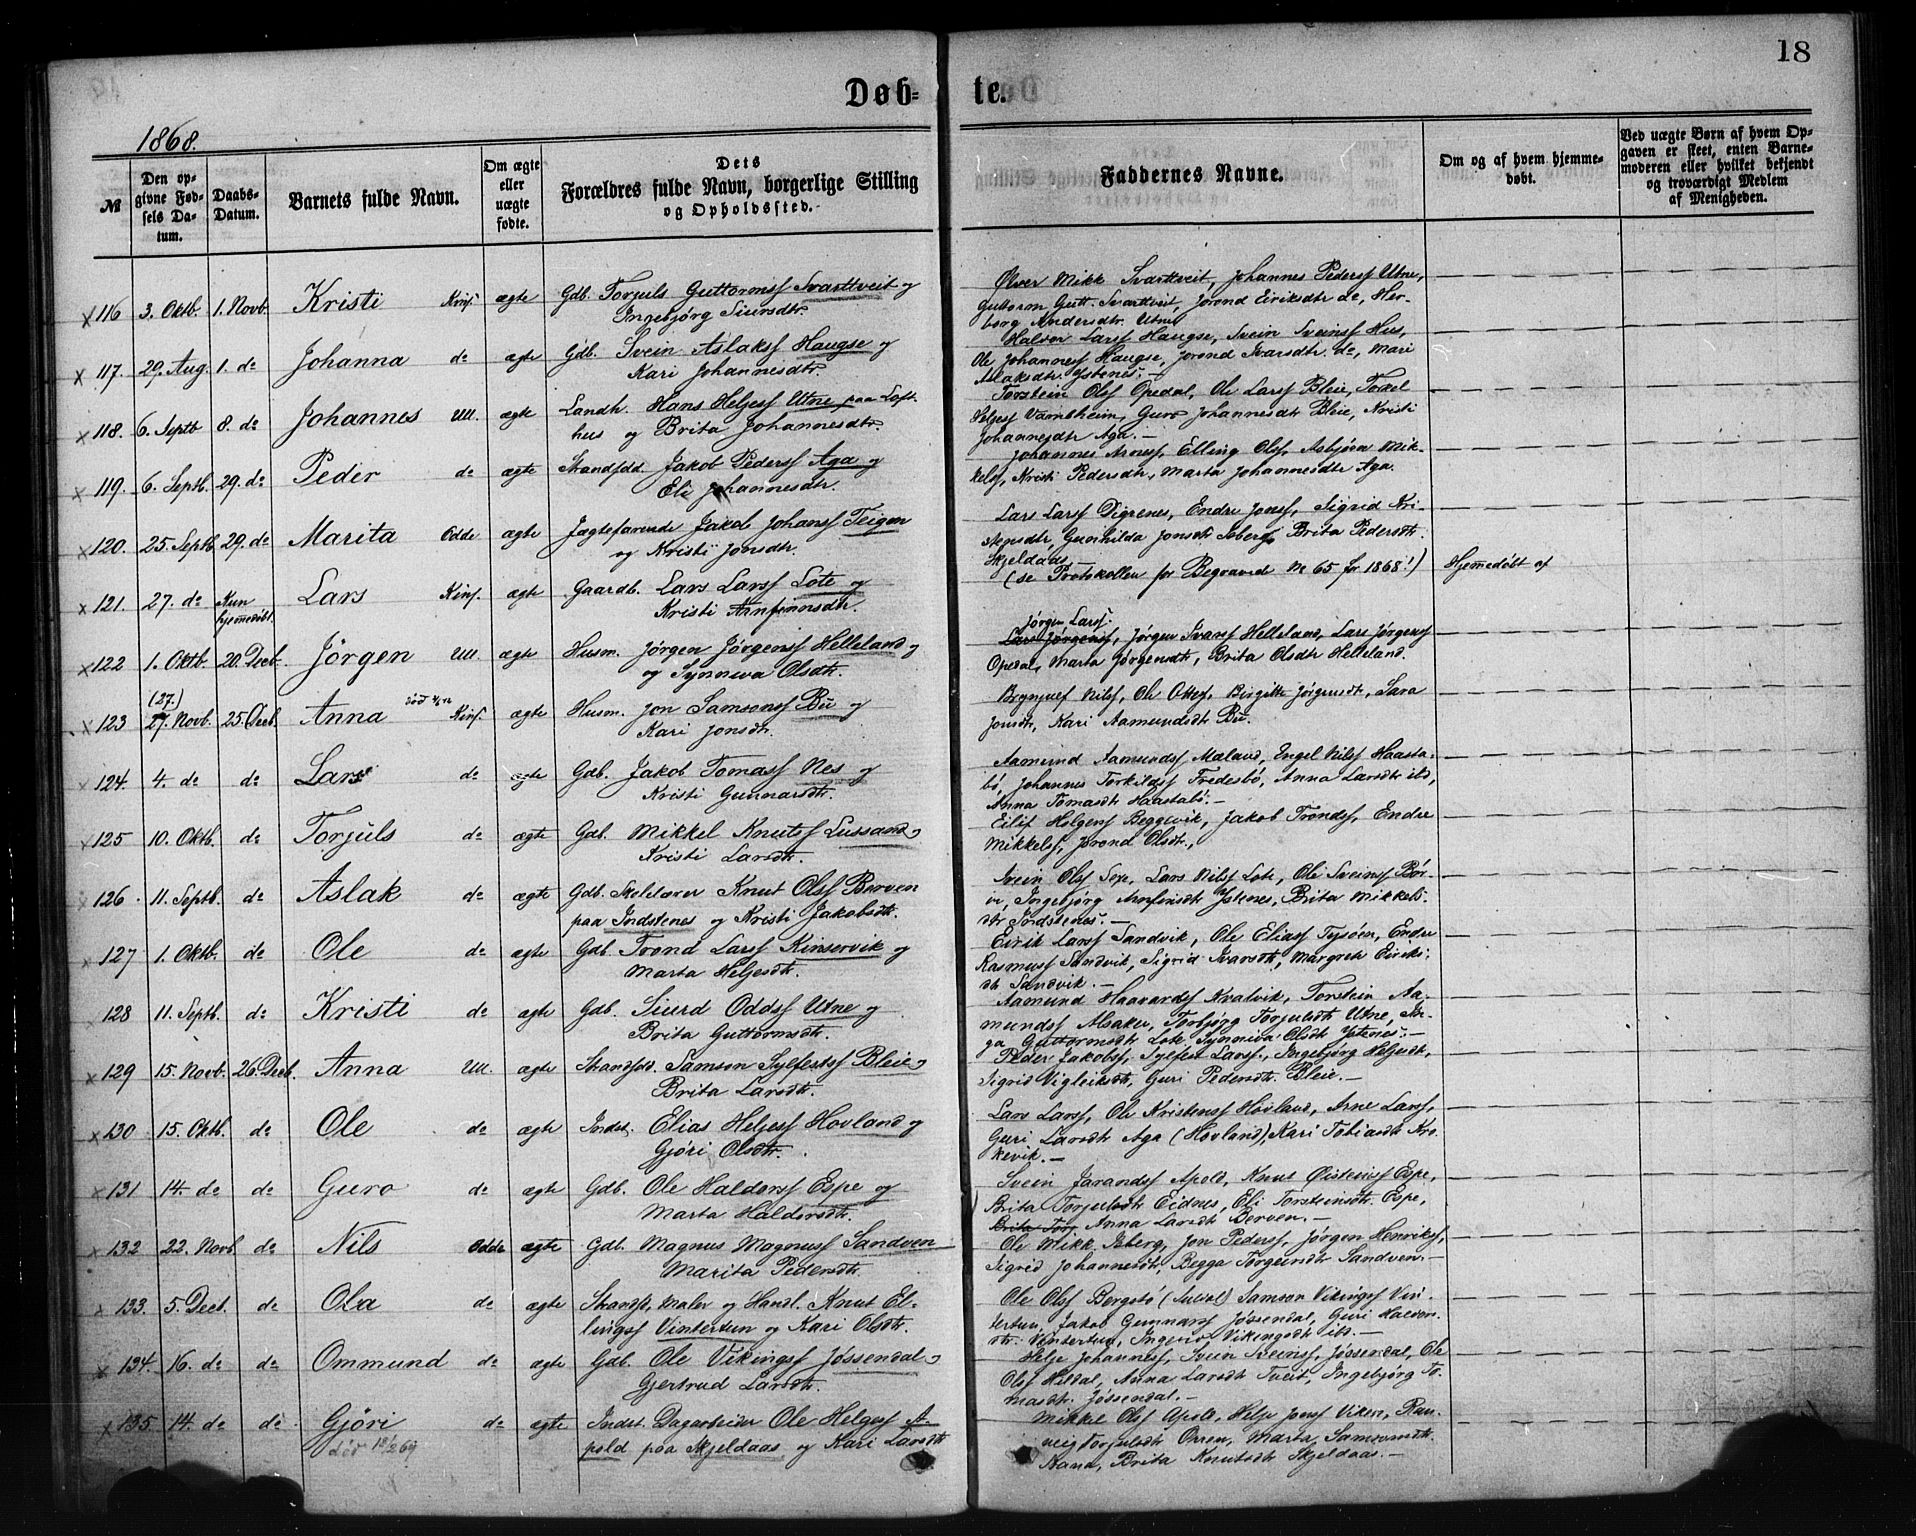 18
Døb-te.
1868.
№
Den opgivne Fødsels Datum.
Daabs-Datum.
Barnets fulde Navn.
Om ægte eller uægte fødte.
Dets Forældres fulde Navn, borgerlige Stilling og Opholdssted.
Faddernes Navne.
Om og af hvem hjemmedøbt.
Ved uægte Børn af hvem Opgaven er skeet, enten Barnemoderen eller hvilket bekjendt og troværdigt Medlem af Menigheden.
116 3. Oktb. 1. Novb. Kristi Kinf. ægte Gdb. Torjuls Guttormsf Svarttveit og
Ingebjørg Siursdtr.
Ølver Mikk Svarttveit, Johannes Pedersf Utne,
Guttorm Gutt. Svarttveit, Jorond Eiriksdtr do, Her-
borg Andersdtr. Utne
117. 29. Aug. 1. do Johanna do ægte Gdb. Svein Aslaksf Haugse og
Kari Johannesdtr.
Haldor Larsf Haugse, Svein Sveinsf Hus,
Ole Johannesf Haugse, Jorond Ivarsdtr. do, Mari
Aslaksdtr. Ystenes. —
118. 6. Septb 8. do Johannes Ull. ægte Landh. Hans Heljesf Utne paa Loft-
hus og Brita Johannesdtr.
Torstein Olsf Opedal, Ole Larsf Bleie, Tokel
Heljesf Varnbheim, Guro Johannesdtr Bleie, Kristi
Johannesdtr Aga. —
119. 6. Septb. 29. do Peder do ægte Strandsdd Jakob Pedersf Aga og
Eli Johannesdtr.
Johannes Arnesf, Elling Olsf, Asbjörn Mik-
kelsf, Kristi Pedersdtr, Marta Johannesdtr Aga.
120. 25. Septb 29. do Marita Odde ægte Jægtefarende Jakob Johansf Teigen
og Kristi Jonsdtr.
Lars Larsf Digrenes, Endre Jonsf, Sigrid Kri-
stensdtr, Gunnhilda Jonsdtr Isberg, Brita Pedersdtr.
Skjeldaas —
121. 27. do Kun hjemmedöbt. Lars Kinf. ægte Gaardb. Lars Larsf Lote og
Kristi Arnfinnsdtr.
(se Protokollen for Begraved No 65 for 1868!) Hjemmedöbt af
122 1. Oktb. 20. Decb. Jörgen Ull. ægte Husm. Jörgen Jörgensf Helleland og
og Synneva Olsdtr.
Jörgen Larsf.
Lars Jörgensf, Jörgen Ivarsf Helleland, Lars Jörgensf
Opedal, Marta Jörgensdtr, Brita Olsdtr Helleland.
123 (27.) 27. Novb. 25. Decb. Anna Kinf. ægte Husm. Jon Samsonsf Bu og
Kari Jonsdtr.
Brynjulf Nilsf, Ole Ottesf, Birgitte Jörgensdtr, Sara
Jonsdtr, Kari Aamundsdtr Bu.
124. 4. do do Lars do ægte Gdb. Jakob Tomasf Nes og
Kristi Gunnarsdtr.
Aamund Aamundsf Maeland, Engel Nilsf Haasta-
bö, Johannes Torkildsf Tredesbö, Anna Larsdtr ibd,
Anna Tomasdtr Haastabö. —
125 10. Oktb. do Torjuls do ægte Gdb. Mikkel Knutsf Lussand og
Kristi Larsdtr.
Eilif Holgersf Beggevik, Jakob Trondsf, Endre
Mikkelsf, Jorond Olsdtr.,
126. 11. Septb. do Aslak do ægte Gdb. Skolelærer Knut Olsf Berven
paa Indstenes og Kristi Jakobsdtr.
Svein Olsf Sexe, Lars Nilsf Lote, Ole Sveinsf Bör-
ve, Ingebjörg Arnfinsdtr Ystenes, Brita Mikkels-
dtr Indstenes. —
127 1. Oktb. do Ole do ægte Gdb. Trond Larsf Kinservik og
Marta Heljesdtr.
Eirik Larsf Sandvik, Ole Eliasf Tysöen, Endre
Rasmusf Sandvik, Sigrid Ivarsdtr, Margrete Eiriks-
dtr Sandvik. —
128 11. Septb. do Kristi do ægte Gdb. Siurd Oddsf Utne og
Brita Guttormsdtr.
Aamund Haavardsf Kvalvik, Torstein Aa-
mundsf Alsaker, Torbjörg Torjulsdtr Utne, An-
ga Guttormsdtr Lote, Synneva Olsdtr Ystenes. —
129 15. Novb. 26. Decb. Anna Ull. ægte Strandsdd. Samson Sylfestsf Bleie og
Brita Larsdtr.
Peder Jakobsf, Sylfest Larsf., Ingebjörg Heljesdtr,
Sigrid Vigleiksdtr, Guri Pedersdtr. Bleie. —
130 15. Oktb. do Ole do ægte Indst. Elias Heljesf Hovland og
Gjöri Olsdtr.
Lars Larsf, Ole Kristensf Hovland, Arne Larsf,
Guri Larsdtr Aga (Hovland), Kari Tobiasdtr Kro-
kevik. —
131 14. do do Guro do ægte Gdb. Ole Haldorsf Espe og
Marta Haldorsdtr.
Svein Jarandsf Apold, Knut Öistensf Espe,
Brita Torjulsdtr Eidnes, Eli Torsteinsdtr. Espe,
Brita Torj Anna Larsdtr Berven. —
132 22. Novb do Nils Odde ægte Gdb. Magnus Magnusf Sandven
Marita Pedersdtr.
Ole Mikk Isberg, Jon Pedersf, Jörgen Henriksf,
Sigrid Johannesdtr, Begga Torgeirsdtr Sandven. —
133. 5. Decb. do Ola do ægte Strandsd, Maler og Handl. Knut El-
lingsf Vintertun og Kari Olsdtr.
Ole Olsf Bergstö Samson Vikingsf Vin-
tertun, Jakob Gunnarsf Jösendal, Guri Haldors-
dtr. Vintertun, Ingerid Vikingsdtr ibd. —
134. 16. do do Ommund do ægte Gdb. Ole Vikingsf Jössendal og
Gjertrud Larsdtr.
Helje Johannesf, Svein Sveinsf, Jössendal, Ole
Olsf Hildal, Anna Larsdtr Tveit, Ingebjörg To-
masdtr. Jössendal. —
135 14. do do Gjöri do ægte Indst. Dagarbeider Ole Helgesf A-
död 18/2 69 pold paa Skjeldaas og Kari Larsdtr
Mikkel Olsf Apold, Helje Josefsf Viken, Ran-
veig Torjulsdtr Orren, Marta Samsonsdtr.
Kana, Brita Knutsdtr Skjeldaas. —